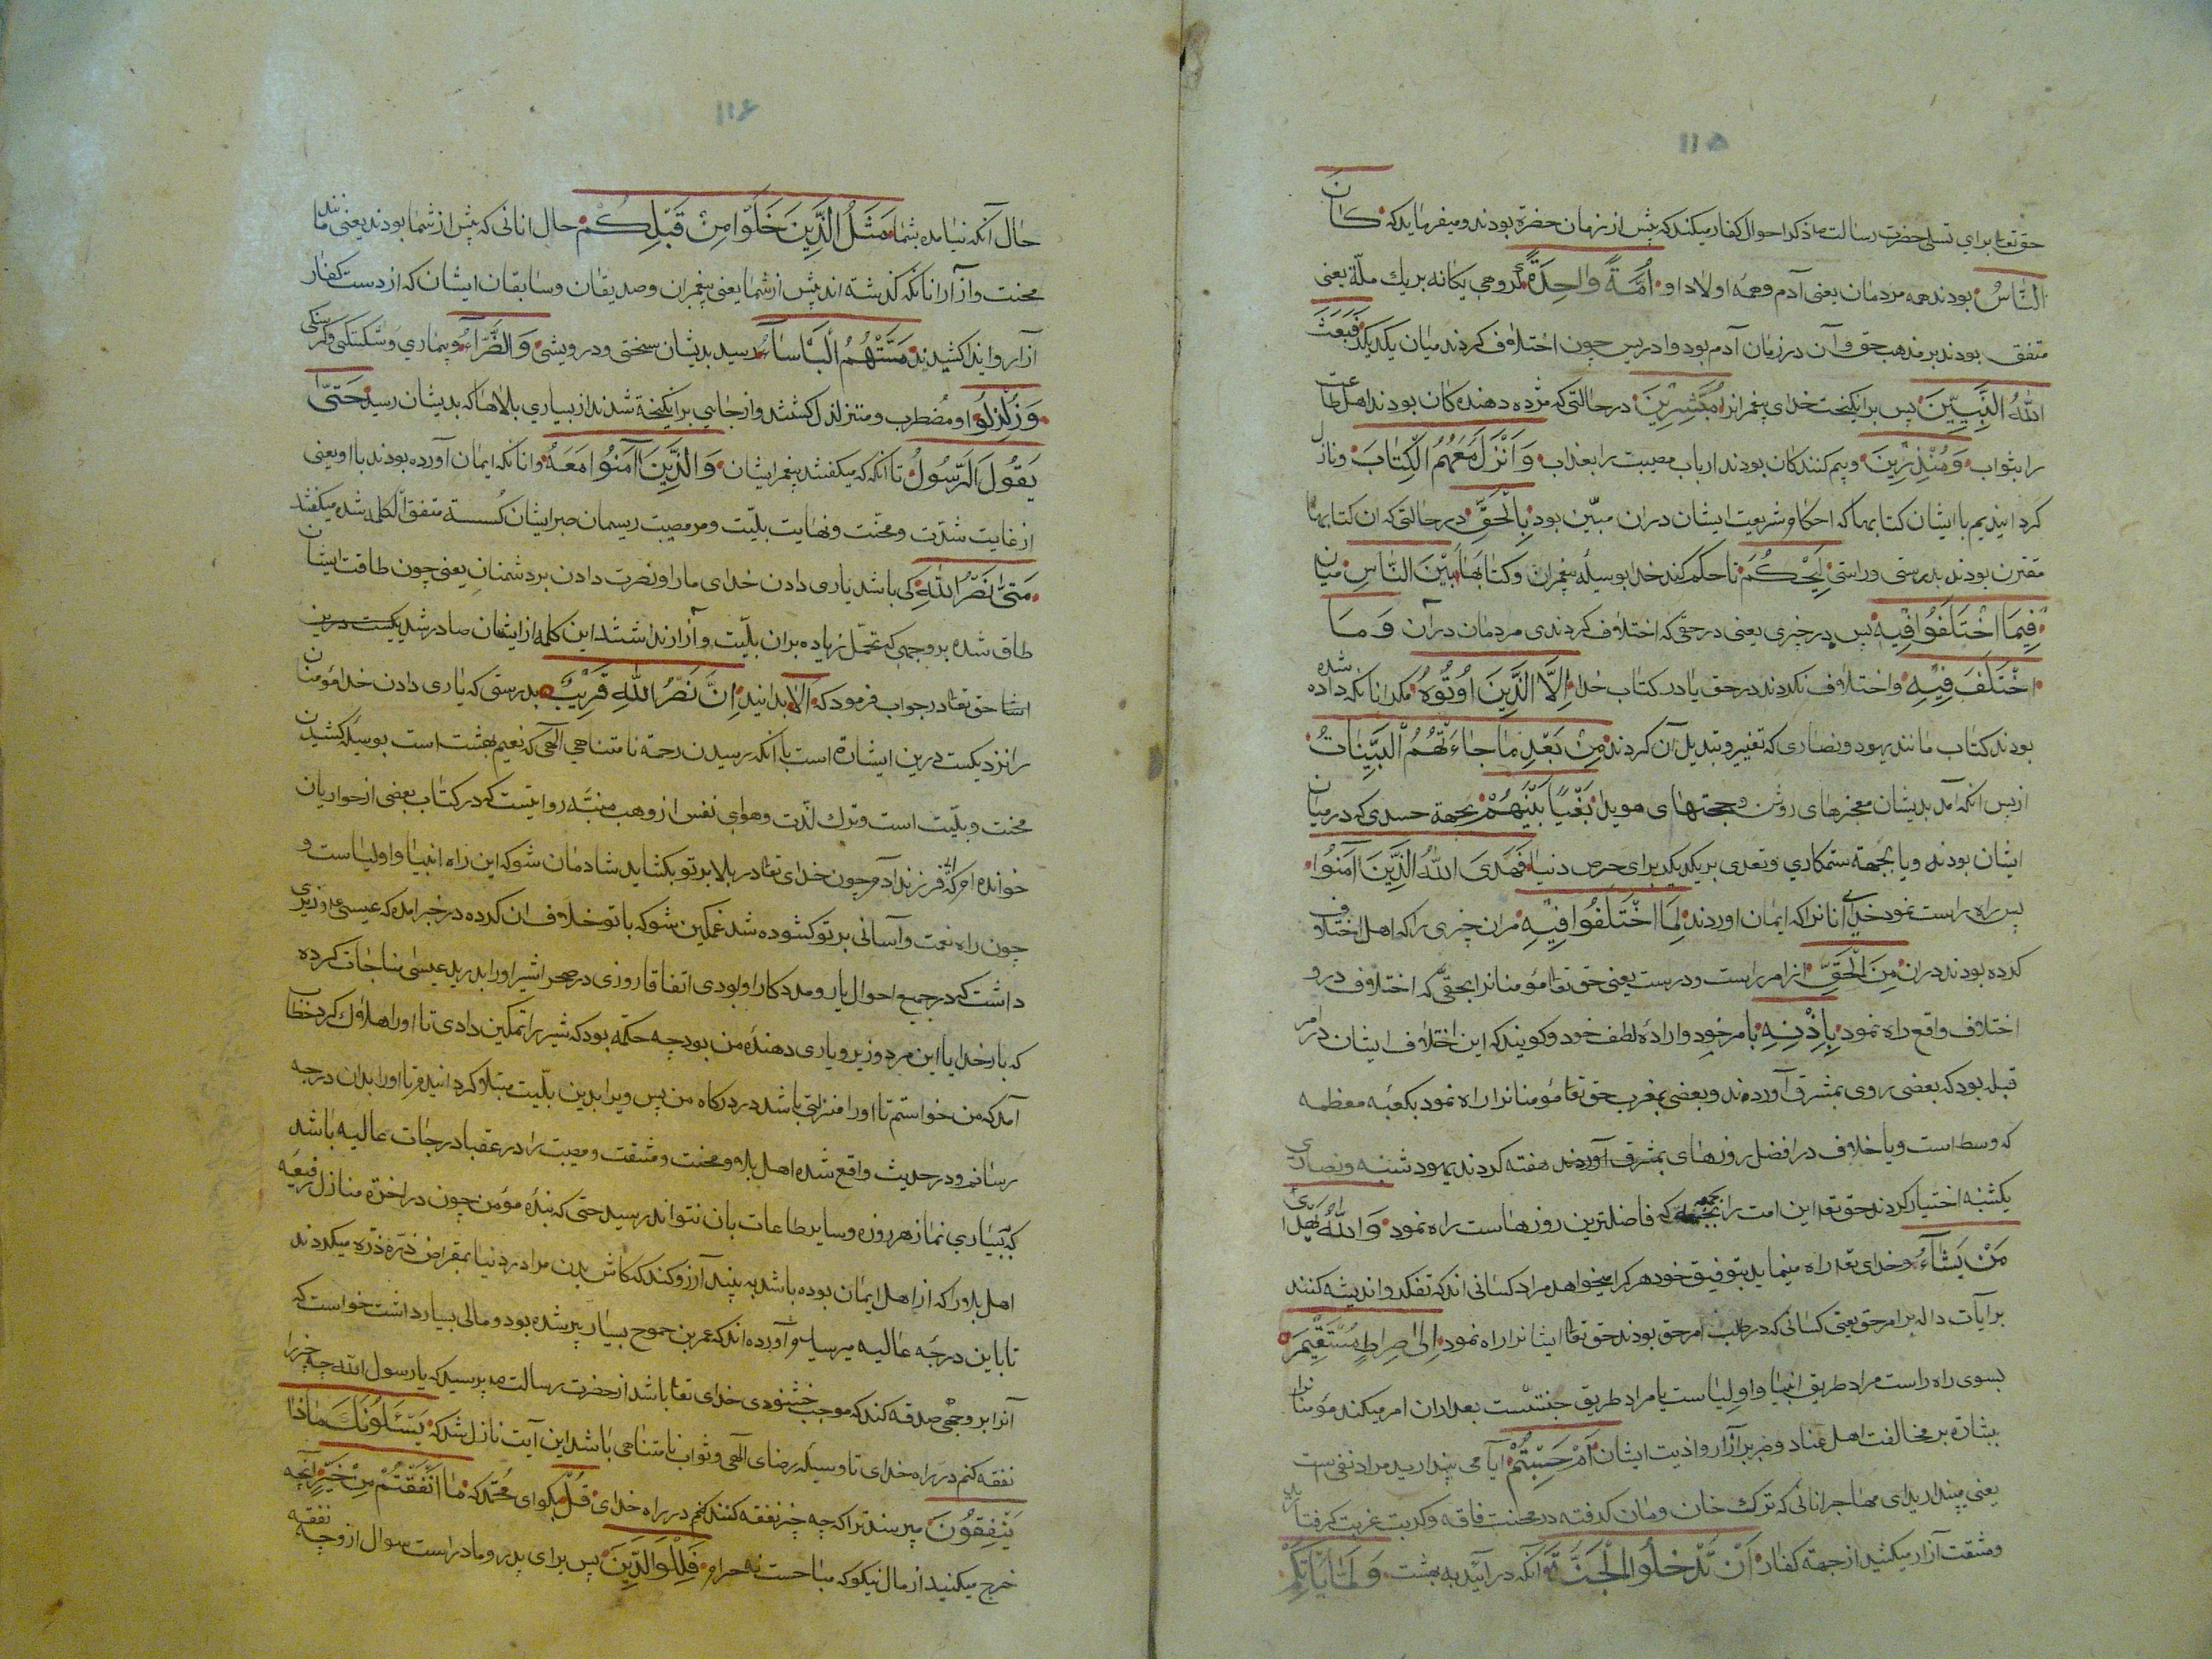 ۱۱۵
حق تعا برای تسلی حضرت رسالت ذکر احوال کفار میکند که پیش از زمان حضرة بودند و میفرماید که کان
الناس بودند همه مردمان یعنی آدم و همه اولاد او امة واحدة کروهی یکانه بر یك ملة یعنی
متفق بودند بر مذهب حق و آن در زمان آدم بود و ادریس چون اختلاف کردند میان یکدیکر فبعث
الله النبیین پس برانکیخت خدای پیغمرانرا مبشرین در حالتی که مژده دهنده کان بودند اهل طاعت
را بثواب و منذرین و بیم کنندکان بودند ارباب مصیبت را بعذاب و انزل معهم الکتاب و نازل
کردانیدیم با ایشان کتابها که احکام شریعت ایشان دران مبین بود بالحق در حالتی که ان کتابها
مقترن بودند بدرستی و راستی لیحکم تا حکم کند خدا بوسیله پیغمران و کتابها بین الناس میان
فیما اختلفوا فیه پس در چیزی یعنی در حقی که اختلاف کردندی مردمان در آن و ما
اختلف فیه و اختلاف نکردند در حق یا در کتاب خدا الا الذین اوتوه مکر انانکه داده شده
بودند کتاب مانند یهود و نصاری که تغییر و تبدیل آن کردند من بعد ما جاءتهم البینات
از پس انکه آمد بدیشان معجزهای روشن و حجتهای هویدا بغیا بینهم بجهة حسدی که در میان
ایشان بودند و یا بجهة ستمکاری و تعدی بر یکدیکر برای حرص دنیا فهدی الله الذین آمنوا
پس راه راست نمود خدای انانرا که ایمان اوردند لما اختلفوا فیه مران چیزی را که اهل اختلاف
کرده بودند دران من الحق از امر راست و درست یعنی حق تعا مؤمنانرا بحقی که اختلاف درو
اختلاف واقع راه نمود باذنه بامر خود و اراده لطف خود و کویند که این اختلاف ایشان در امر
قبله بود که بعضی روی بمشرق آوردند و بعضی بمغرب حق تعا مؤمنانرا راه نمود بکعبه معظمه
که وسط است و یا خلاف در افضل روزهای هفته کردند یهود شنبه و نصاری
یکشنبه اختیار کردند حق تعا این امت را بجمعه که فاضلترین روزهاست راه نمود و الله یهدی
من یشاء و خدای تعا راه مینماید بتوفیق خود هر کرا میخواهد مراد کسانی اند که تفکر و اندیشه کنند
بر ایات داله بر امر حق یعنی کسانی که در طلب امر حق بودند حق تعا ایشانرا راه نمود الی صراط مستقیم
بسوی راه راست مراد طریق انبیا و اولیاست یا مراد طریق جنتست بعد ازان امر میکند مؤمنانرا
بر مخالفت اهل عناد و صبر بر آزار و اذیت ایشان ام حسبتم ایا می پندارید مراد نفی است
یعنی مپندارید ای مهاجرانی که ترک خان و مان کرفته در محنت فاقه و کربت غربت کرفتارید
و مشقت آزار میکشید از جهة کفار ان تدخلوا الجنة آنکه درآئید به بهشت و لما یأتکم
۱۱۶
حال آنکه نیامده بشما مثل الذین خلوا من قبلکم حال انانی که پیش از شما بودند یعنی
محنت و آزار انانکه کذشته اند پیش از شما یعنی پیغمران و صدیقان و سابقان ایشان که از دست کفار
آزار و ایذا کشیدند مستهم البأساء رسید بدیشان سختی و درویشی و الضراء و بیماری و شکستکی و کرسنکی
و زلزلوا و مضطرب و متزلزل کشتند و از جایی برانکیخته شدند از بسیاری بلاها که بدیشان رسید حتی
یقول الرسول تا آنکه که میکفتند پیغمر ایشان و الذین آمنوا معه و انانکه ایمان آورده بودند با او یعنی
از غایت شدت و محنت و نهایت بلیت و مصیبت ریسمان صبر ایشان کسسته متفق الکلمه شده میکفتند
متی نصر الله کی باشد یاری دادن خدای ما را و نصرت دادن بر دشمنان یعنی چون طاقت ایشان
طاق شده بر وجهی که تحمل زیاده بران بلیت و آزار نداشتند این کلمه از ایشان صادر شد
حق تعا در جواب فرمود که الا بدانید ان نصر الله قریب بدرستی که یاری دادن خدا مؤمنان
را نزدیکست درین اشارة است بانکه رسیدن رحمة نامتناهی الهی که نعیم بهشت است بوسیله کشیدن
محنت و بلیت است و ترک لذت و هوای نفس از وهب منبه روایتست که در کتاب بعضی از حواریان
خوانده ام که ای فرزند آدم چون خدای تعا در بلا بر تو بکشاید شادمان شو که این راه انبیا و اولیاست و
چون راه نعمت و آسانی بر تو کشوده شد غمکین شو که با تو خلاف ان کرده در خبر امده که عیسی وزیری
داشت که در جمیع احوال یار و مددکار او بودی اتفاقا روزی در صحرا شیر او را بدرید عیسی مناجات کرده
که بار خدایا این مرد وزیر و یاری دهندهٔ من بود چه حکمه بود که شیر را تمکین دادی تا او را هلاک کرد خطاب
آمد که من خواستم تا او را منزلتی باشد در درکاه من پس ویرا بدین بلیت مبتلا کردانیدم تا او را بدان درجه
رسانم و در حدیث واقع شده اهل بلا و محنت و مشقت و مصیبت را در عقبا درجات عالیه باشد
که بسیاری نماز هر روزه و سایر طاعات بان نتواند رسید حتی که بنده مؤمن چون در اخرة منازل رفیعه
اهل بلا را که از اهل ایمان بوده باشد به بیند آرزو کند که کاش بدن مرا در دنیا بمقراض ذره ذره میکردند
تا باین درجه عالیه میرسیدم و آورده اند که عمر بن جموح بسیار پیر شده بود و مالی بسیار داشت خواست که
آنرا بر وجهی صدقه کند که موجب خشنودی خدای تعا باشد از حضرت رسالت پرسید که یا رسول الله چه چیز را
نفقه کنم در راه خدای تا وسیله رضای الهی و ثواب نامتناهی باشد این آیت نازل شد که یسئلونك ماذا
ینفقون میپرسند ترا که چه چیز نفقه کنند در راه خدای قل بکو ای محمد که ما انفقتم من خیر آنچه نفقه
خرج میکنید از مال نیکو که مباحست نه حرام فللوالدین پس برای پدر و مادر است سوال از وجه